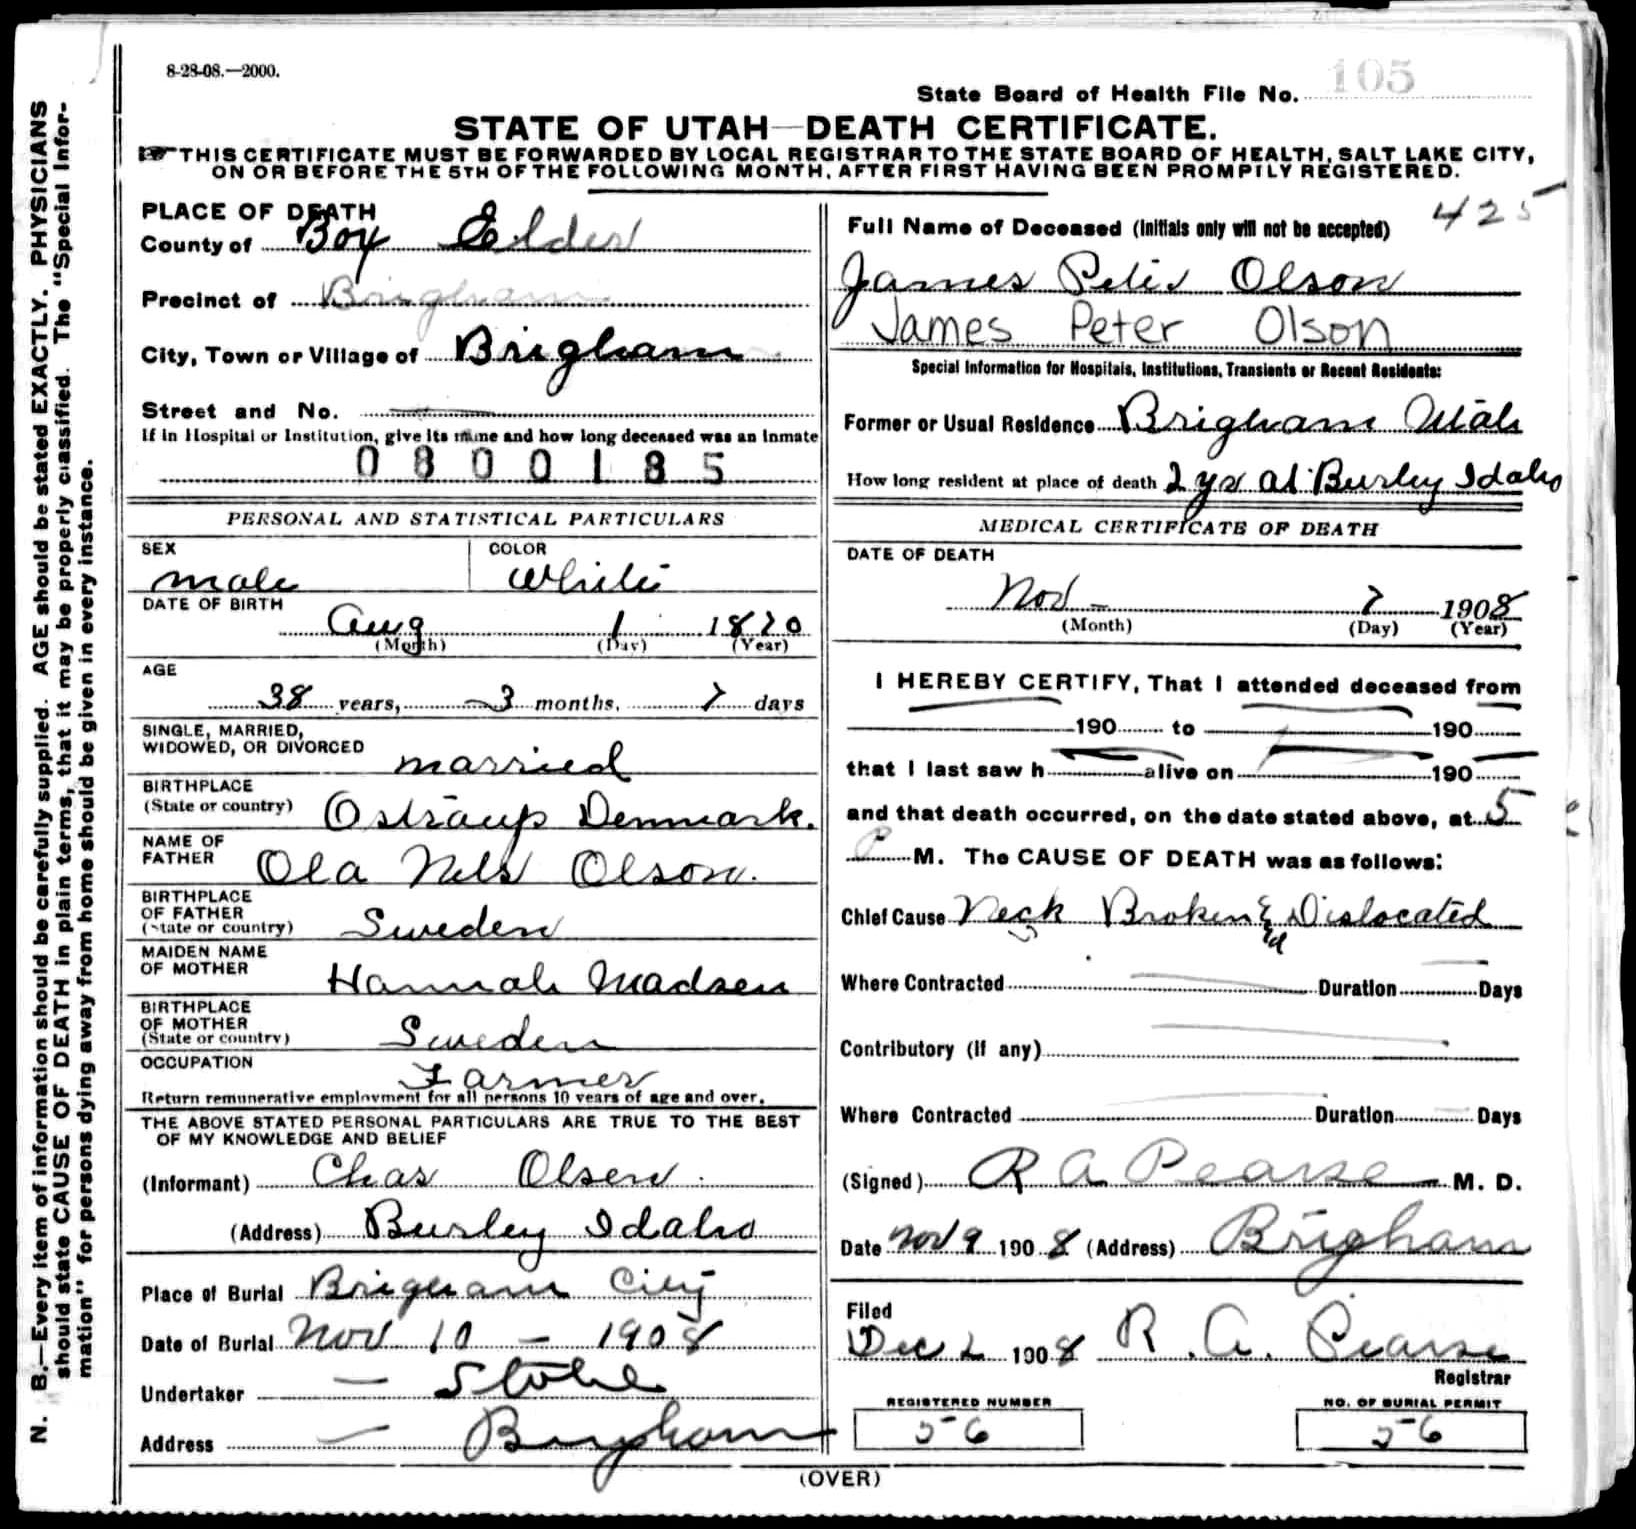 8-28-08.—2000.
State Board of Health File No. 105
STATE OF UTAH—DEATH CERTIFICATE.
THIS CERTIFICATE MUST BE FORWARDED BY LOCAL REGISTRAR TO THE STATE BOARD OF HEALTH, SALT LAKE CITY,
ON OR BEFORE THE 5TH OF THE FOLLOWING MONTH, AFTER FIRST HAVING BEEN PROMPTLY REGISTERED.
N. B.—Every item of information should be carefully supplied. AGE should be stated EXACTLY. PHYSICIANS
should state CAUSE OF DEATH in plain terms, that it may be properly classified. The "Special Infor-
mation" for persons dying away from home should be given in every instance.
PLACE OF DEATH
County of Box Elder
Precinct of Brigham
City, Town or Village of Brigham
Street and No. —
If in Hospital or Institution, give its name and how long deceased was an Inmate
0800185
PERSONAL AND STATISTICAL PARTICULARS
SEX
male
COLOR
White
DATE OF BIRTH
Aug 1 1870
(Month) (Day) (Year)
AGE
38 years, 3 months, 7 days
SINGLE, MARRIED,
WIDOWED, OR DIVORCED married
BIRTHPLACE
(State or country) Ostraup Denmark.
NAME OF
FATHER Ola Nels Olson.
BIRTHPLACE
OF FATHER
(State or country) Sweden
MAIDEN NAME
OF MOTHER Hannah Madsen
BIRTHPLACE
OF MOTHER
(State or country) Sweden
OCCUPATION
Farmer
Return remunerative employment for all persons 10 years of age and over.
THE ABOVE STATED PERSONAL PARTICULARS ARE TRUE TO THE BEST
OF MY KNOWLEDGE AND BELIEF
(Informant) Chas Olsen.
(Address) Burley Idaho
Place of Burial Brigham City
Date of Burial Nov 10 – 1908
Undertaker — Stohl
Address — Brigham
425
Full Name of Deceased (Initials only will not be accepted)
James Peter Olson
James Peter Olson
Special Information for Hospitals, Institutions, Transients or Recent Residents:
Former or Usual Residence Brigham Utah
How long resident at place of death 2 yrs at Burley Idaho
MEDICAL CERTIFICATE OF DEATH
DATE OF DEATH
Nov – 7 1908
(Month) (Day) (Year)
I HEREBY CERTIFY, That I attended deceased from
190 to 190
that I last saw h alive on 190
and that death occurred, on the date stated above, at 5
P M. The CAUSE OF DEATH was as follows:
Chief Cause Neck Broken & Dislocated
Where Contracted Duration Days
Contributory (If any)
Where Contracted Duration Days
(Signed) R A Pearse M. D.
Date Nov 9 1908 (Address) Brigham
Filed
Dec 2 1908 R. A. Pearse
Registrar
REGISTERED NUMBER
56
NO. OF BURIAL PERMIT
56
(OVER)